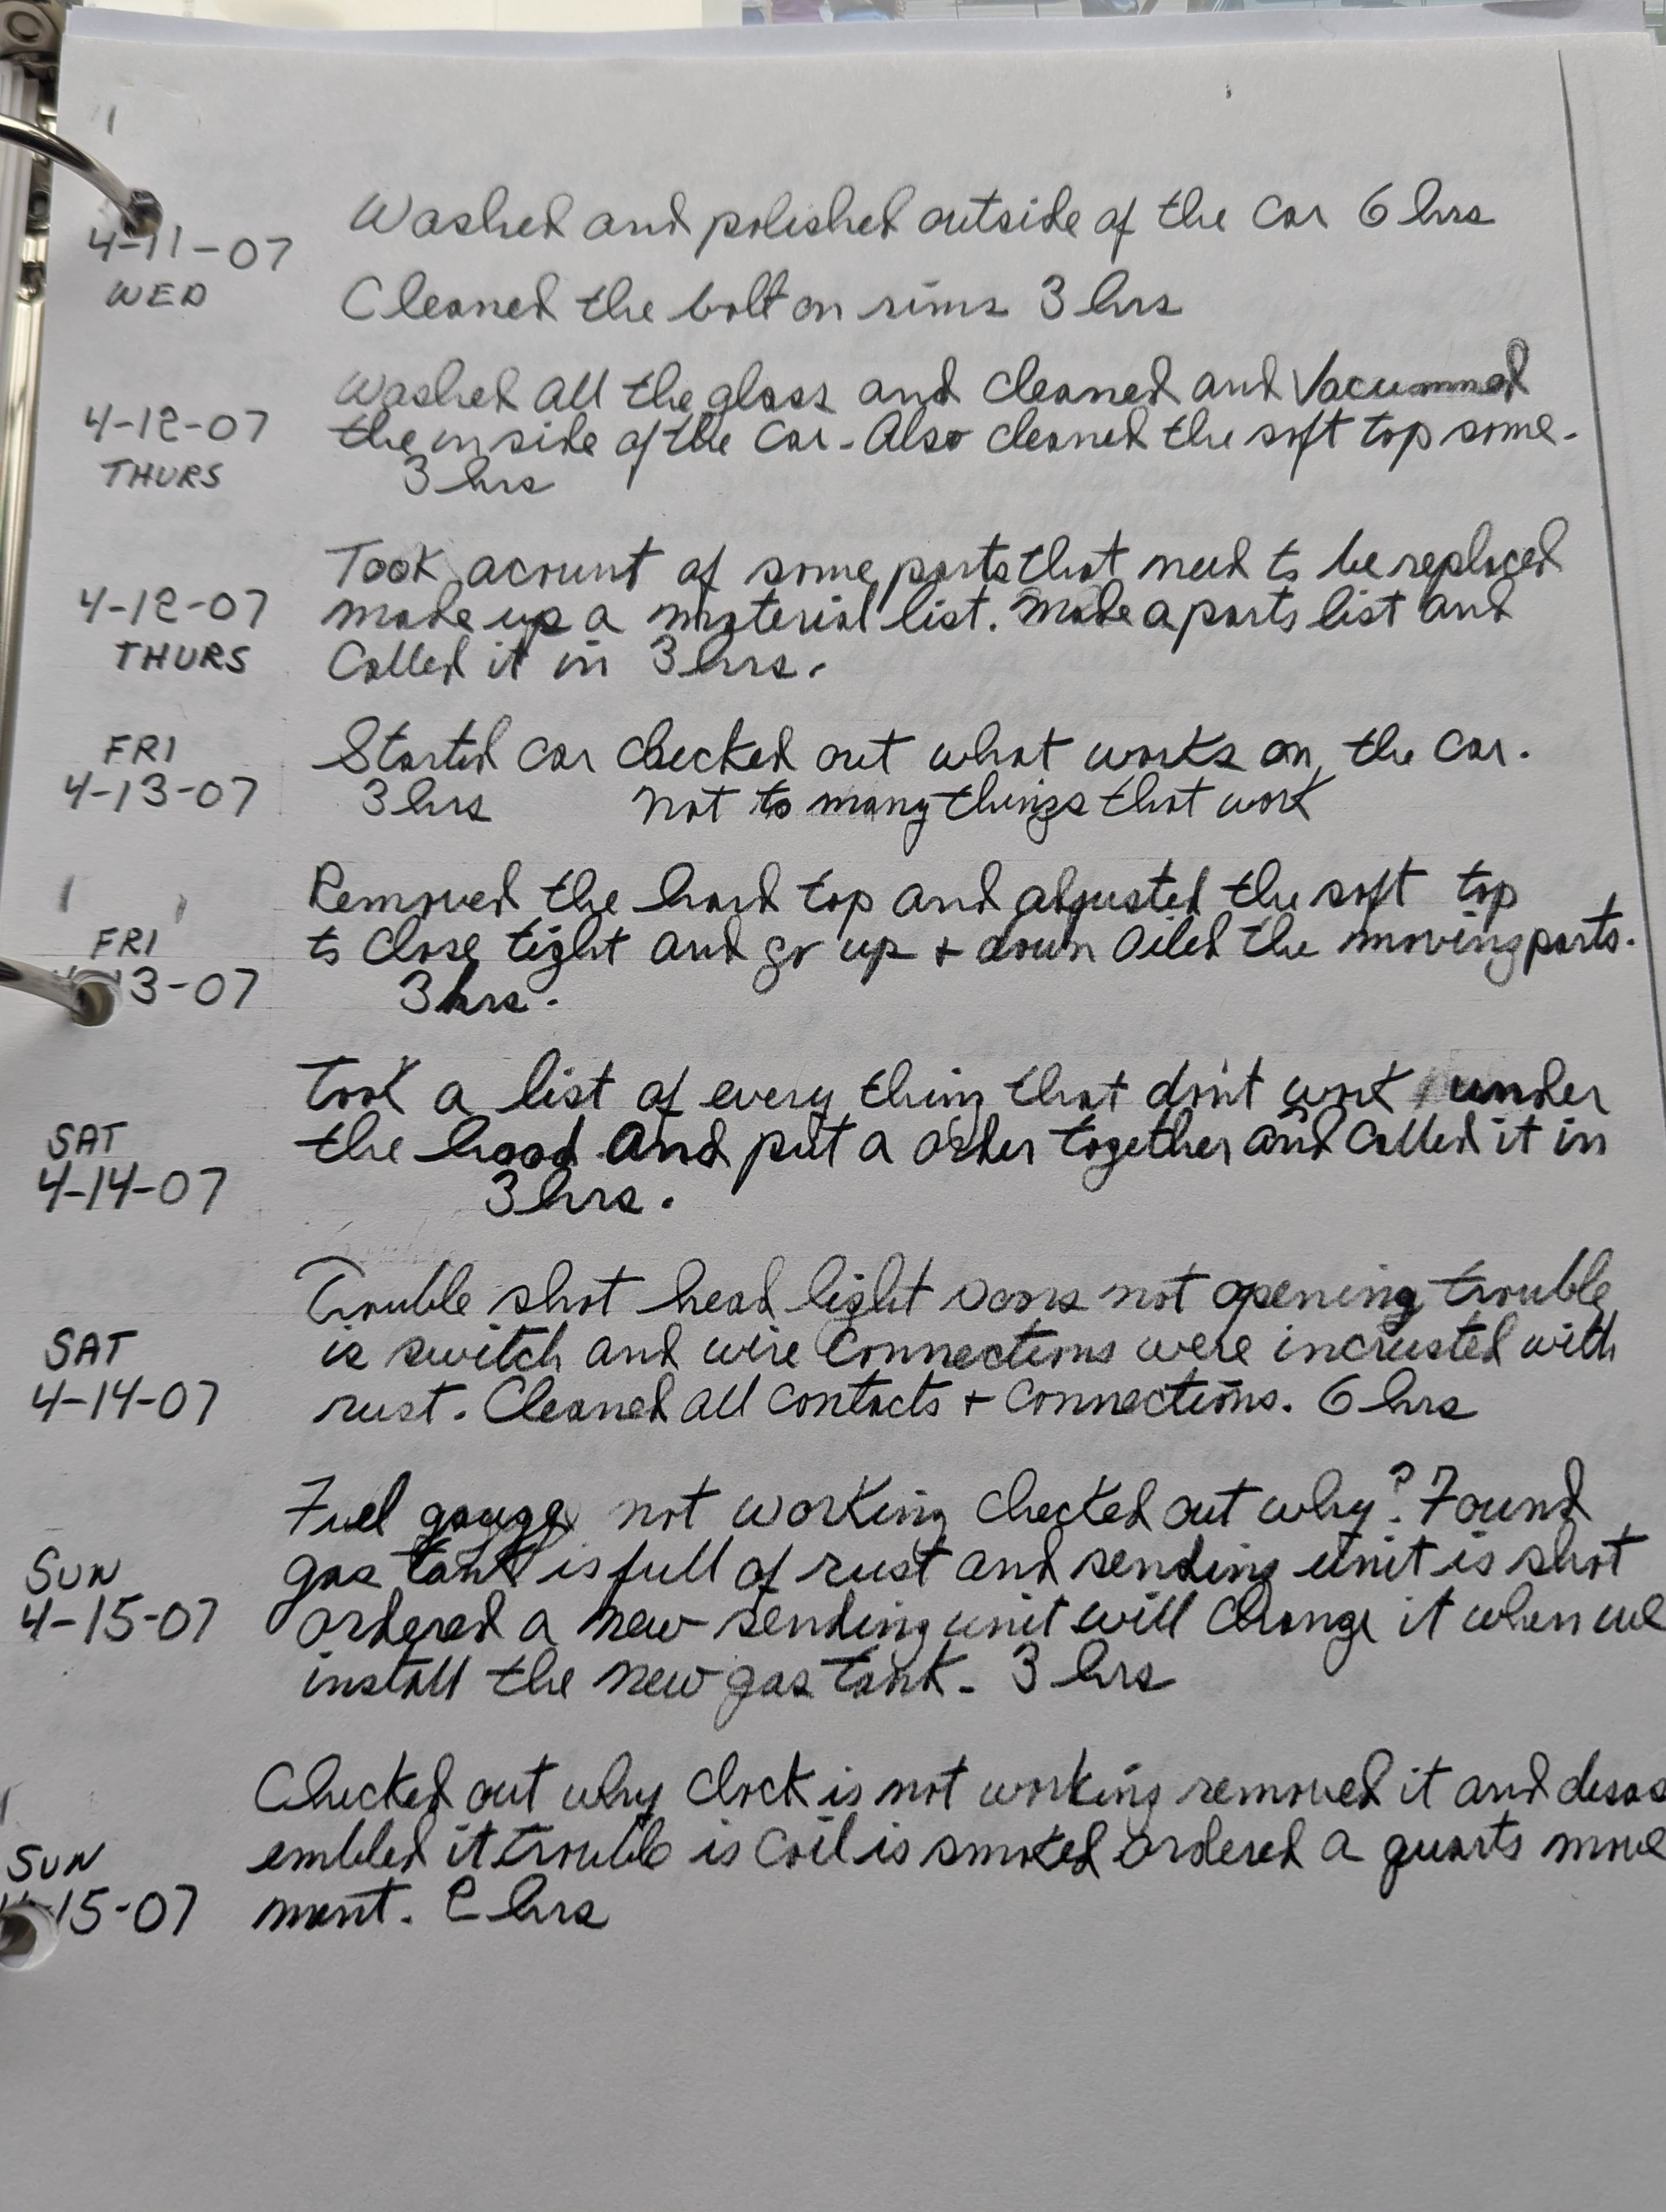 Washed and polished outside of the car 6 hrs
4-11-07
WED
Cleaned the bolt on rims 3 hrs
Washed all the glass and cleaned and Vacummed
4-12-07
the inside of the car - Also cleaned the soft top some.
THURS
3 hrs
Took acount of some parts that need to be replaced
4-12-07
made up a material list. Made a parts list and
THURS
Called it in 3 hrs.
FRI
Started car checked out what works on the car.
4-13-07
3 hrs not to many things that work
Removed the hard top and adjusted the soft top
FRI
to close tight and go up + down Oiled the moving parts.
13-07
3 hrs.
Took a list of every thing that don't work under
SAT
the hood and put a order together and called it in
4-14-07
3 hrs.
Trouble shot head light doors not opening trouble
SAT
is switch and wire connections were incrusted with
4-14-07
rust. Cleaned all contacts + connections. 6 hrs
Fuel gauge not working checked out why? Found
SUN
gas tank is full of rust and sending unit is shot
4-15-07
ordered a new sending unit will change it when we
install the new gas tank - 3 hrs
Checked out why clock is not working removed it and desas
SUN
embled it trouble is coil is smoked ordered a quarts move
15-07
ment. 2 hrs